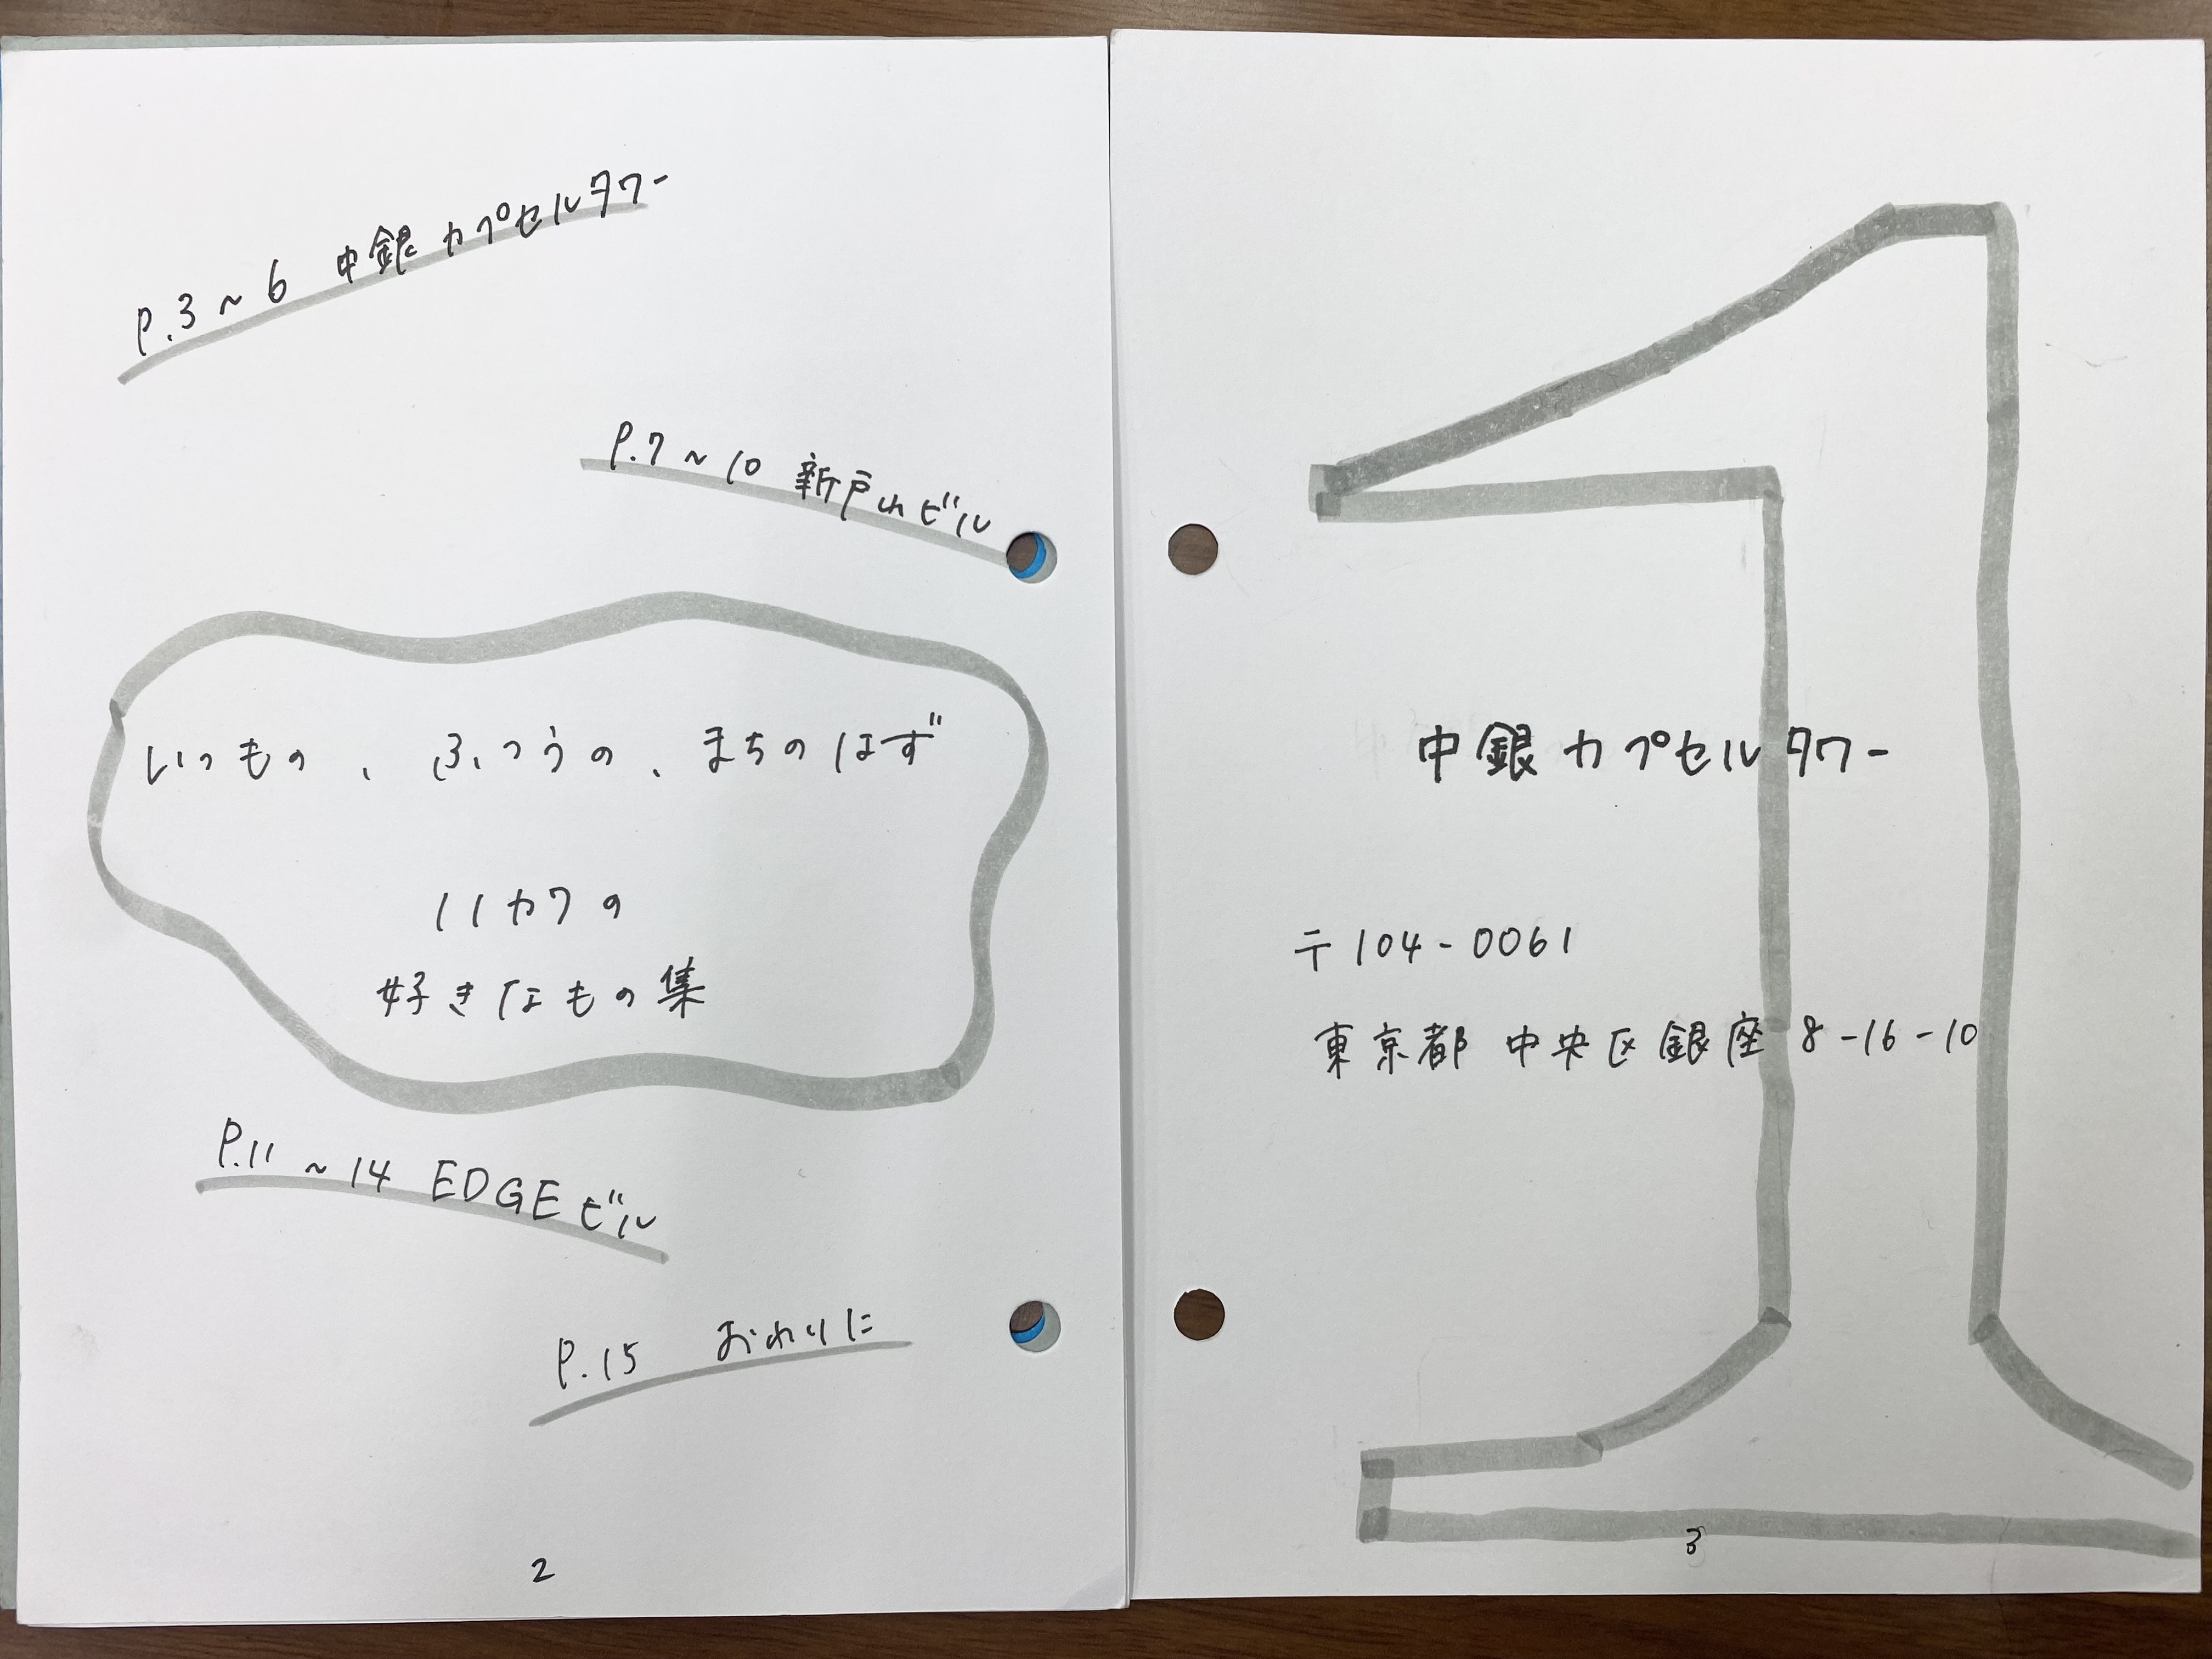 P.3～6 中銀カプセルタワー
P.7～10 新戸山ビル
いつもの、ふつうの、まちのはず
好きなもの集
P.11～14 EDGEビル
P.15 おわりに
2
中銀カプセルタワー
〒104-0061
東京都中央区銀座8-16-10
3